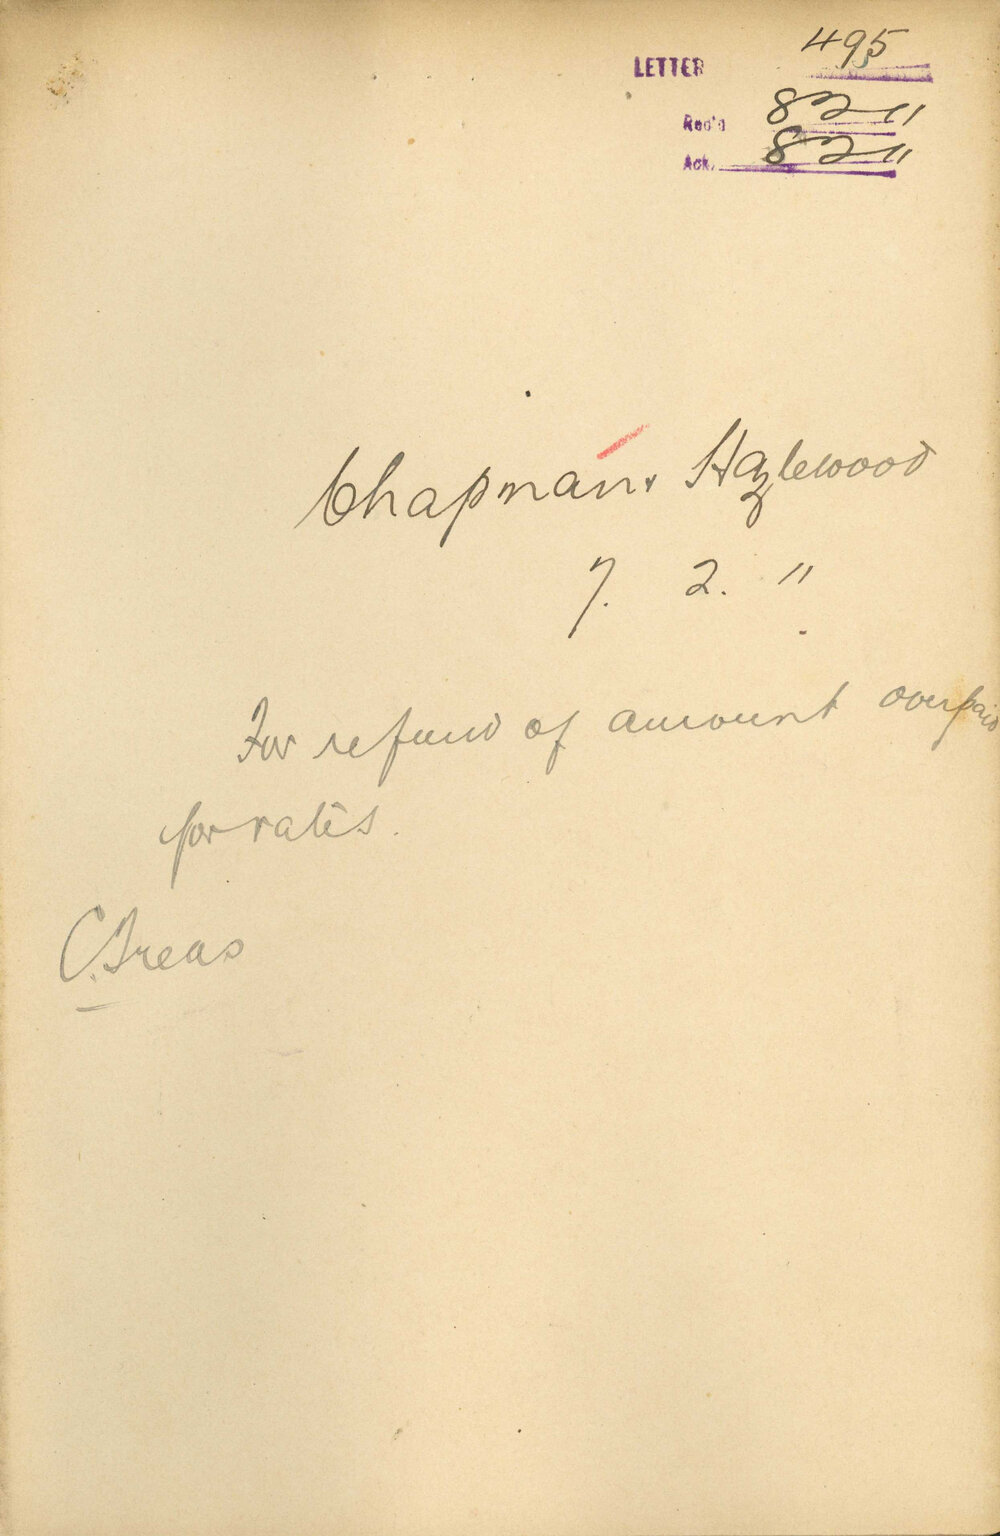 LETTER 495
Rec'd 8 2 11
Ack. 8 2 11
Chapman & Hazlewood
7. 2. 11
For refund of amount overpaid
for rates.
C. Treas